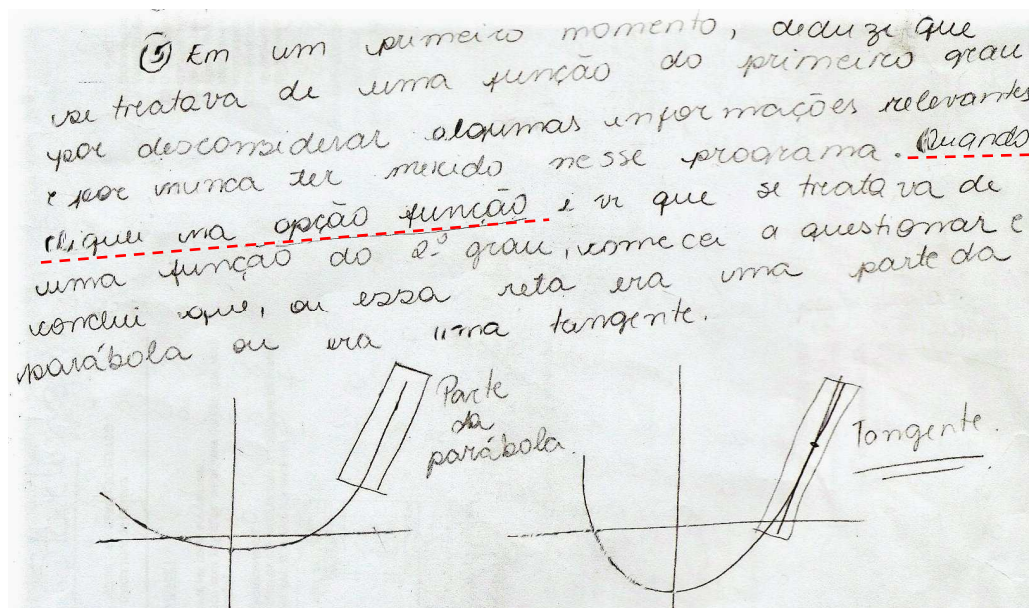 ⑤ Em um primeiro momento, deduzi que
se tratava de uma função do primeiro grau
por desconsiderar algumas informações relevantes
e por nunca ter mexido nesse programa. Quando
cliquei na opção função e vi que se tratava de
uma função do 2º grau, comecei a questionar e
conclui que, ou essa reta era uma parte da
parábola ou era uma tangente.
Parte
da
parábola.
Tangente.